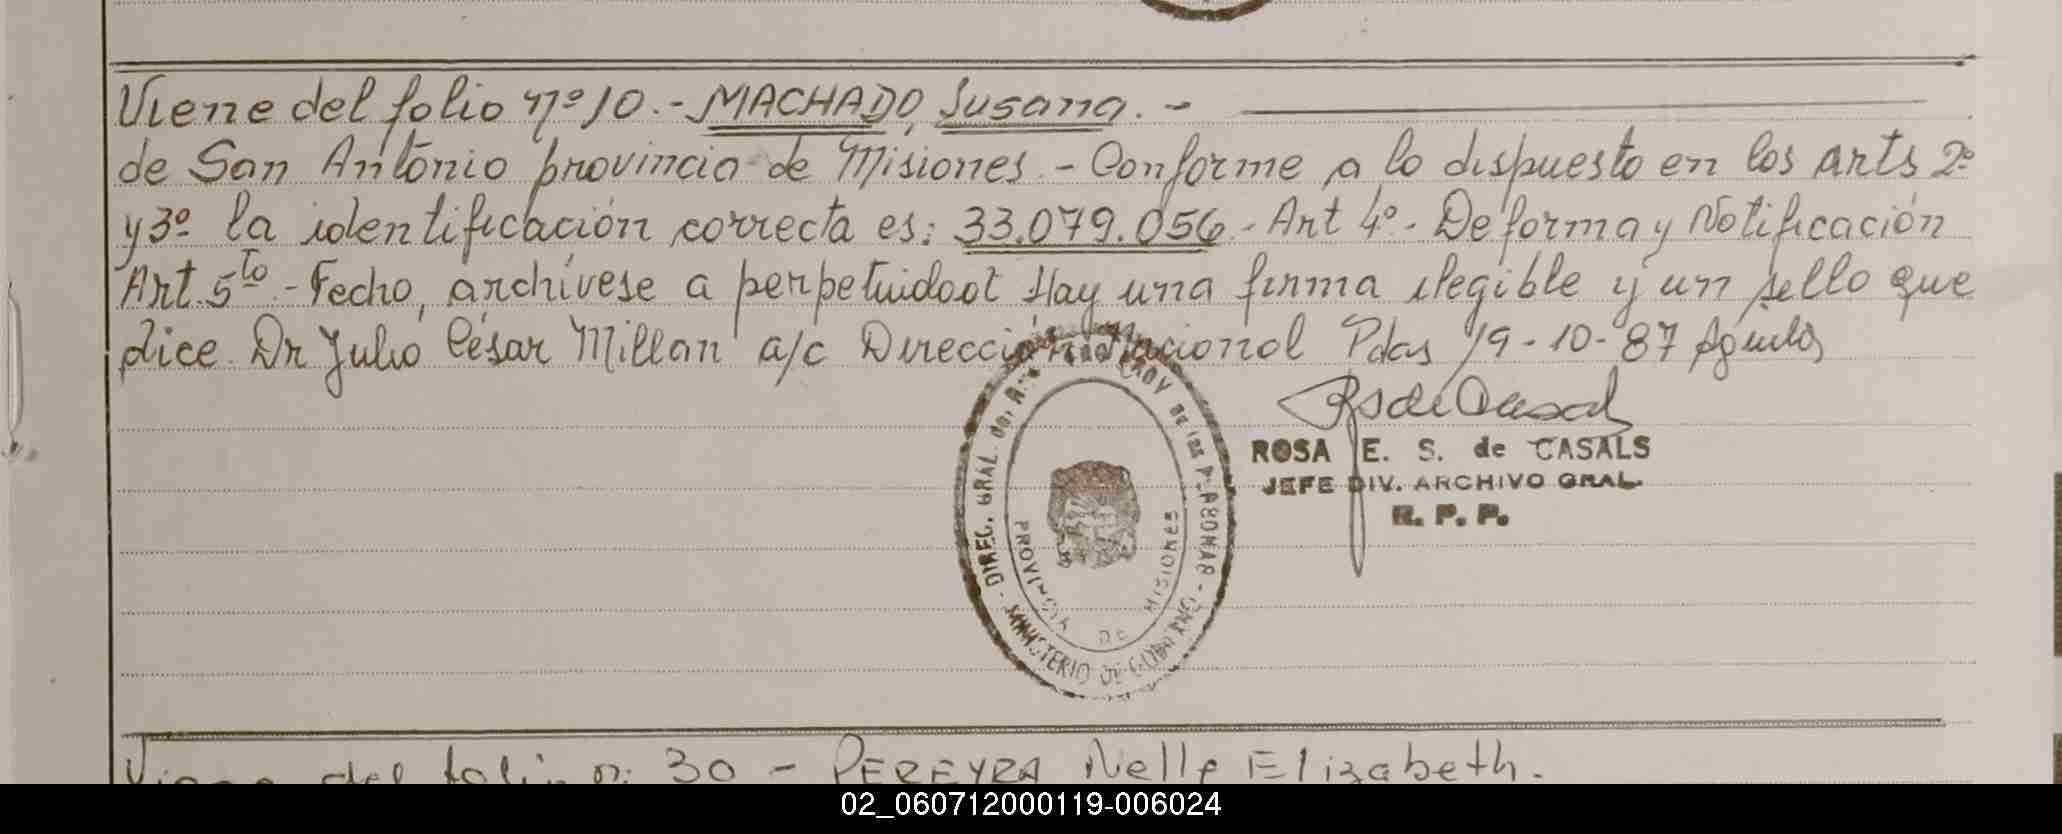 Viene del folio nº 10.- MACHADO, Susana. -
de San Antonio provincia de Misiones. - Conforme a lo dispuesto en los arts 2º
y 3º la identificación correcta es: 33.079.056.- Art 4º.- De forma y Notificación
Art. 5to.- Fecho, archívese a perpetuidad Hay una firma ilegible y un sello que
dice Dr Julio César Millan a/c Dirección Nacional Pdas 19-10-87
ROSA E. S. de CASALS
JEFE DIV. ARCHIVO GRAL.
R. P. P.
DIREC. GRAL. DEL PROV. DE LAS PERSONAS
MINISTERIO DE GOBIERNO
PROVINCIA DE MISIONES
Viene del folio n: 30 - PEREYRA Nelly Elizabeth.
02_060712000119-006024